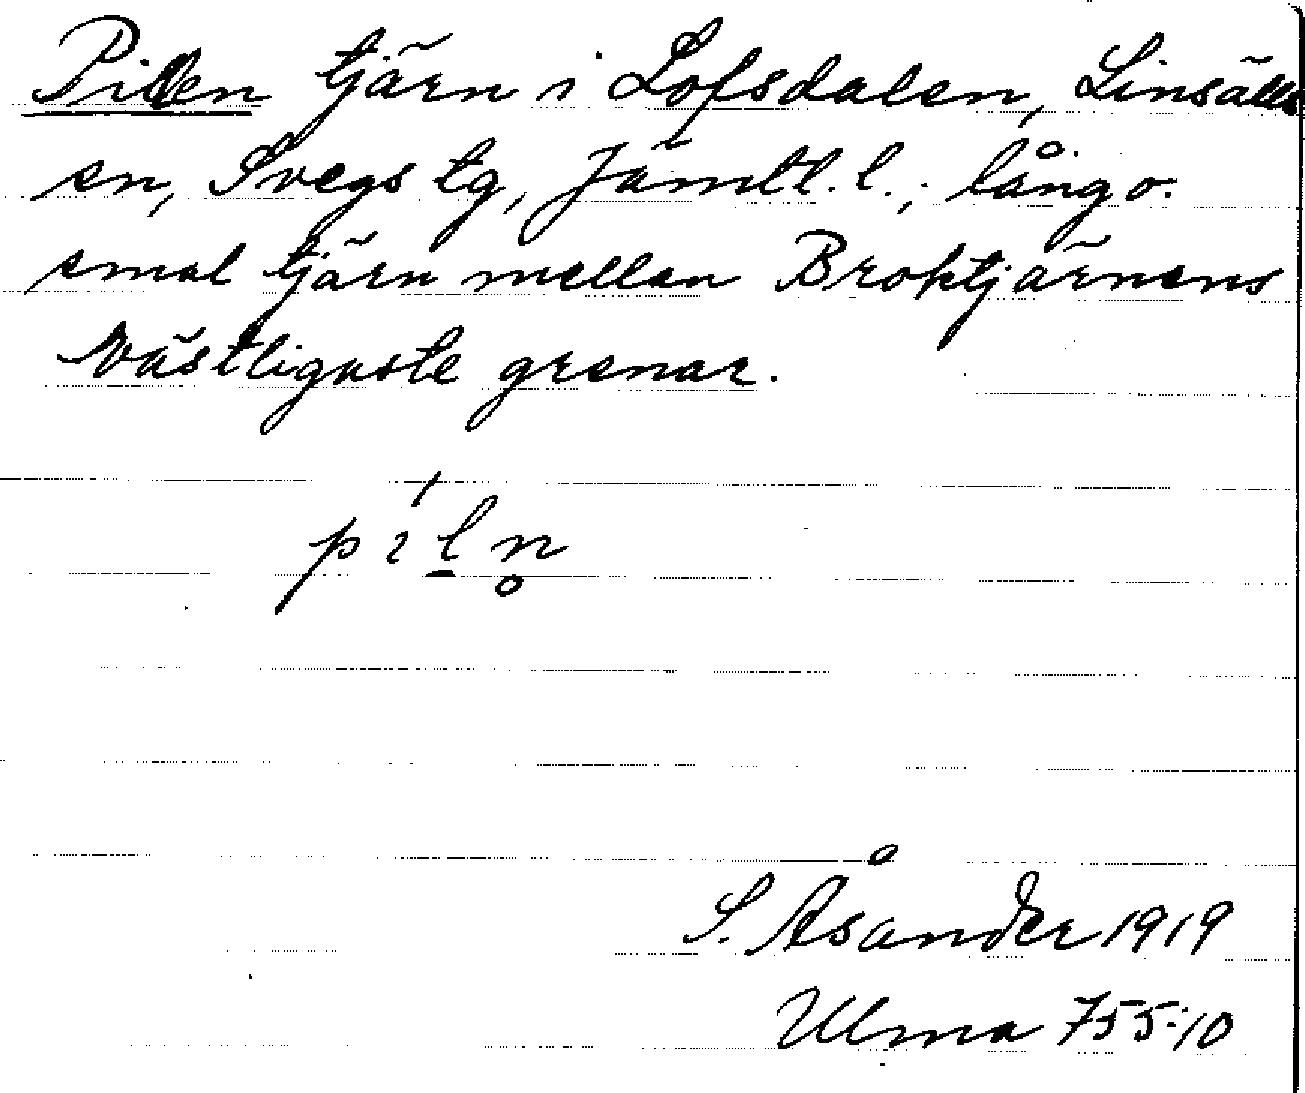 Pilen tjärn i Lofsdalen, Linsäll-
en, Svegs tg, Jämtl. l.; lång o.
smal tjärn mellan Broktjärnens
västligaste grenar.
píln̥
S. Åsander 1919
Ulma 755:10